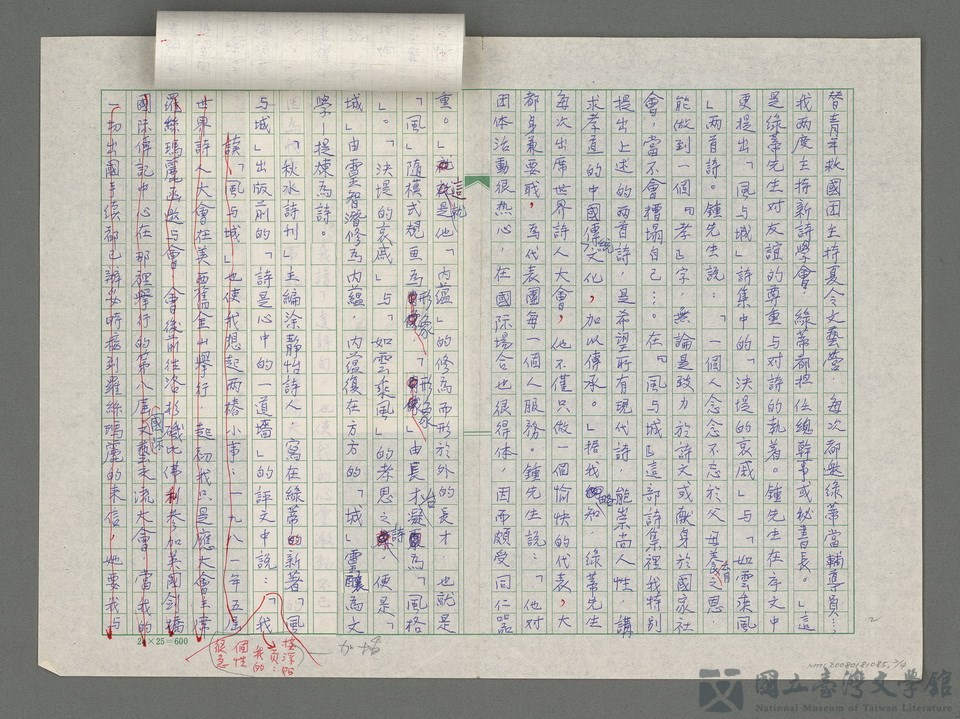 替青年救國團主持夏令文藝營，每次都邀綠蒂當輔導員…
我兩度主持新詩學會，綠蒂都担任總幹事或秘書長。」這
是綠蒂先生对友誼的尊重与对詩的執著。鍾先生在序文中
更提出「風与城」詩集中的「決堤的哀戚」与「如雲乘風
」两首詩。鍾先生說：「一個人念念不忘於父母養育之恩
能做到一個『孝』字，無論是致力於詩文或献身於國家社
會，當不會糟塌自己…。在『風与城』這部詩集裡我特別
提出上述的两首詩，是希望所有現代詩，能崇尚人性，講
求孝道的中國傳統文化，加以傳承。」据我略知，綠蒂先生
每次出席世界詩人大會，他不僅只做一個愉快的代表，大
都身兼要職，為代表團每一個人服務。鍾先生說：「他对
团体活動很热心，在國际場合也很得体，因而頗受同仁器
重。這就是他「內蘊」的修為而形於外的長才，也就是
「風」隨模式規画為形象，「形象」由長才凝為「風格
」。「決堤的哀戚」与「如雲乘風」的孝思之詩，便是「
城」由靈智潛修為内蘊，内蘊復在方方的「城」靈釀為文
學—提煉為詩。
「秋水詩刊」主編涂靜怡詩人，寫在綠蒂的新著「風
与城」出版前的「詩是心中的一道墻」的評文中說：「我
讀「風与城」也使我想起两樁小事：一九八一年五屆
世界詩人大會在美西舊金山舉行，起初我只是應大會主席
羅絲瑪麗函邀与會，會後前往洛杉磯比佛利參加英國劍橋
國际傳記中心在那裡舉行的第八屆國际文藝交流大會，當我的
一切出國手續都已辦妥時接到羅絲瑪麗的來信，她要我与
24×25=600
加墙
我的
個性
很急
2
NMTL20080181085,2/4
國立臺灣文學館
National Museum of Taiwan Literature